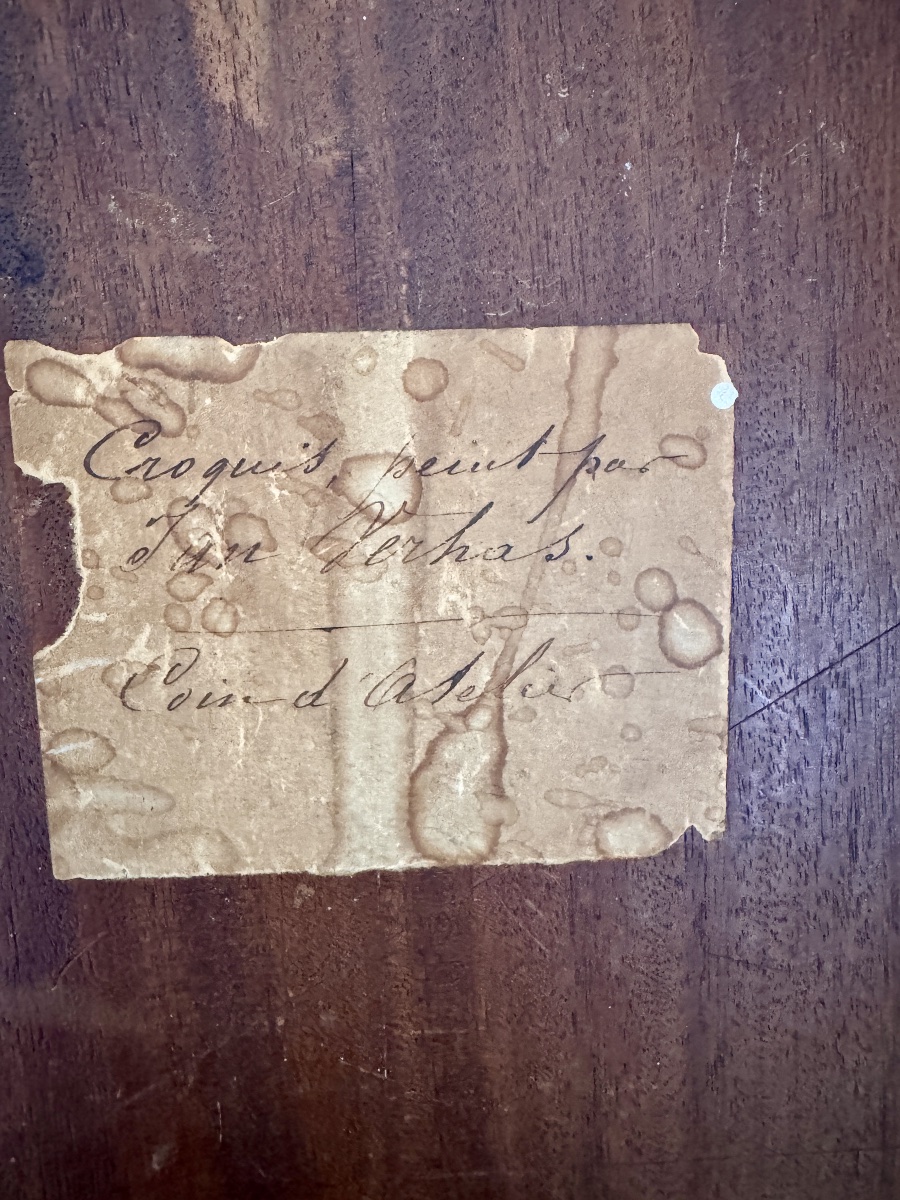 Croquis, peint par
Jan Verhas.
Coin d'Atelier